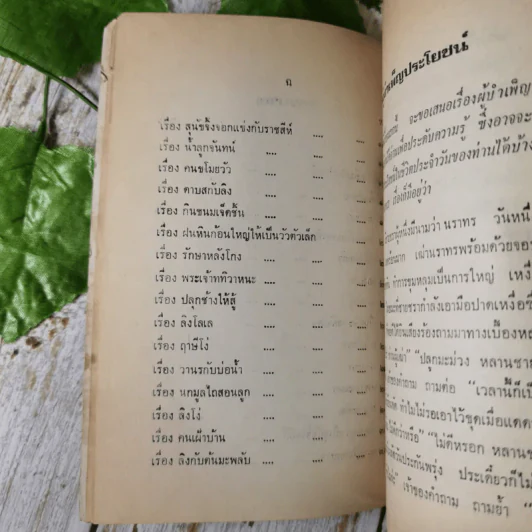 ฉ
เรื่อง สุนัขจิ้งจอกแข่งกับราชสีห์ .... ....
เรื่อง น้ำลูกจันทน์ .... ....
เรื่อง คนขโมยวัว .... ....
เรื่อง ดาบสกับลิง .... ....
เรื่อง กินขนมเจ็ดชิ้น .... ....
เรื่อง ฝนหินก้อนใหญ่ให้เป็นวัวตัวเล็ก
เรื่อง รักษาหลังโกง .... ....
เรื่อง พระเจ้าททิวาหนะ .... ....
เรื่อง ปลุกช้างให้สู้ .... ....
เรื่อง ลิงโลเล .... ....
เรื่อง ฤาษีโง่ .... ....
เรื่อง วานรกับบ่อน้ำ .... ....
เรื่อง นกมูลไถสอนลูก .... ....
เรื่อง ลิงโง่ .... ....
เรื่อง คนเฝ้าบ้าน .... ....
เรื่อง ลิงกับต้นมะพลับ .... ....
ประโยชน์
จะขอเสนอเรื่องผู้บำเพ็ญ
เพื่อประดับความรู้ ซึ่งอาจจะ
ในชีวิตประจำวันของท่านได้บ้าง
มีอยู่ว่า
นามว่า นราทร วันหนึ่
เผ่านราทรพร้อมด้วยจอ
ทำการขุมหลุมเป็นการใหญ่
กำลังเอามือปาดเหงื่อ
เสียงร้องถามมาทางเบื้องหล
"ปลูกมะม่วง หลานชาย
คำถาม ถามต่อ "เวลานี้ก็เป็
ทำไมไม่รอเอาไว้ขุดเมื่อแดด
"ไม่ดีหรอก หลานช
ประกันพรุ่ง ประเดี๋ยวก็ไม
เจ้าของคำถาม ถามย้ำ